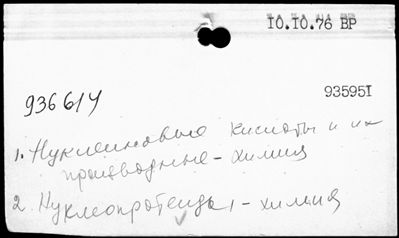 10.10.76 ВР
936614
935951
1. Нуклеиновые кислоты и их
производные - химия
2. Нуклеопротеиды - химия